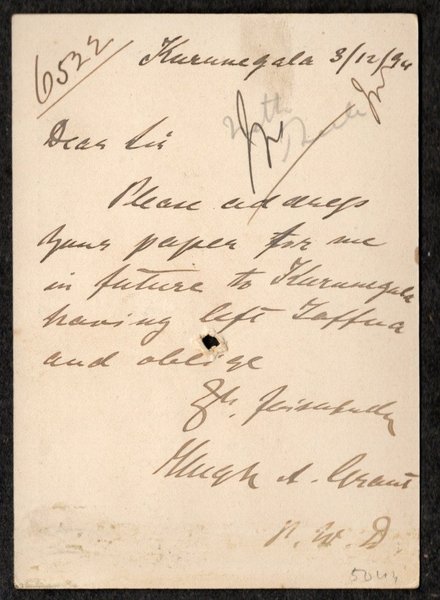 6522
Kurunegala 3/12/94
Dear Sir
Please address
your paper for me
in future to Kurunegala
having left Jaffna
and oblige
Hugh A. Grant
P. W. D